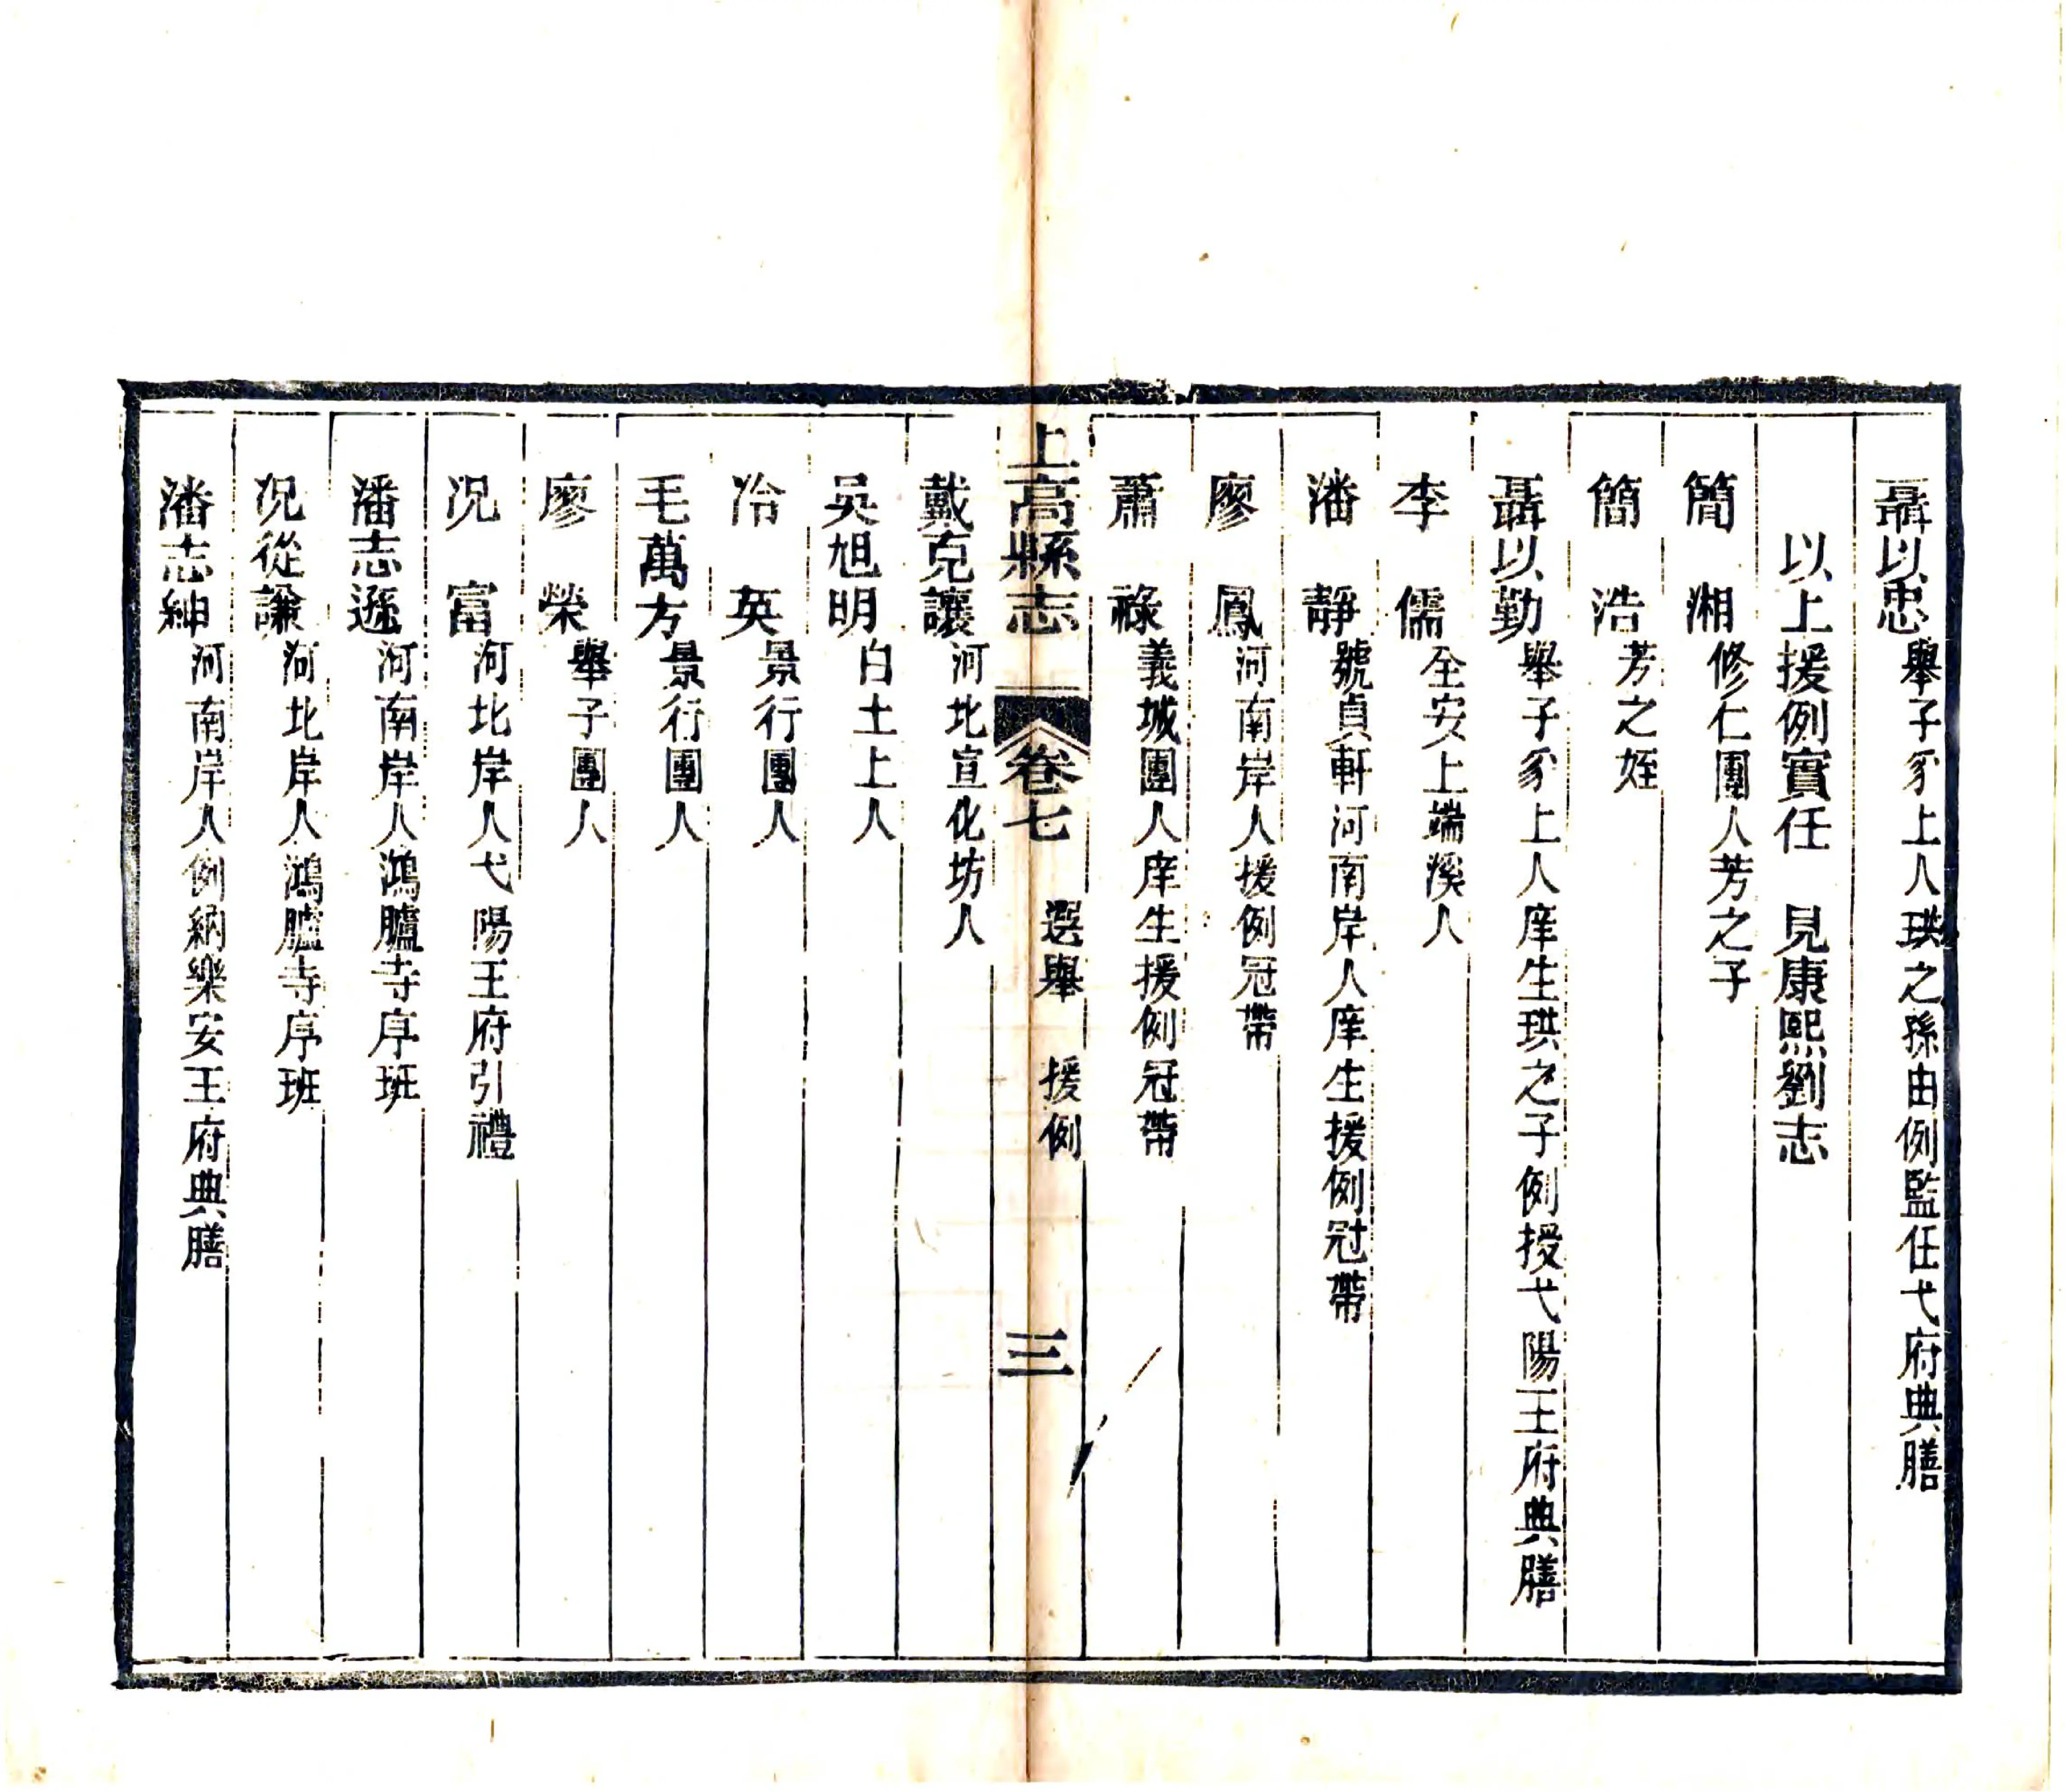 聶以忠舉子豸上人珙之孫由例監任弋府典膳
以上援例實任　見康熙劉志
簡　湘修仁團人芳之子
簡　浩芳之姪
聶以勤舉子豸上人庠生珙之子例授弋陽王府典膳
李　儒全安上端溪人
潘　靜號貞軒河南岸人庠生援例冠帶
廖　鳳河南岸人援例冠帶
蕭　祿義城團人庠生援例冠帶
上高縣志　卷七　選舉　援例　三
戴克讓河北宣化坊人
吳旭明白土上人
冷　英景行團人
毛萬方景行團人
廖　榮舉子團人
况　富河北岸人弋陽王府引禮
潘志遜河南岸人鴻臚寺序班
况從謙河北岸人鴻臚寺序班
潘志紳河南岸人例納樂安王府典膳